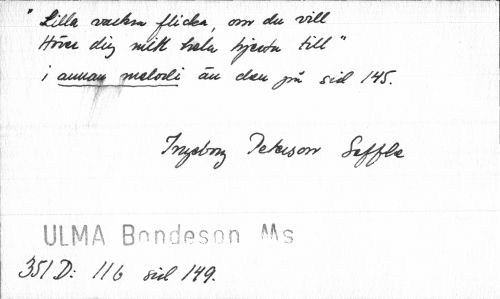 "Lilla vackra flicka, om du vill
Höra dig mitt hela hjerta till"
i annan melodi än den på sid 145.
Ingeborg Peterson Saffle
ULMA Bondeson Ms
351 D: 116 sid 149.